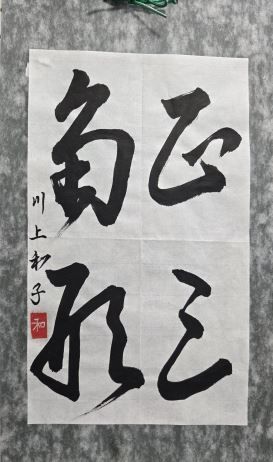 正三
角形
川上和子
和